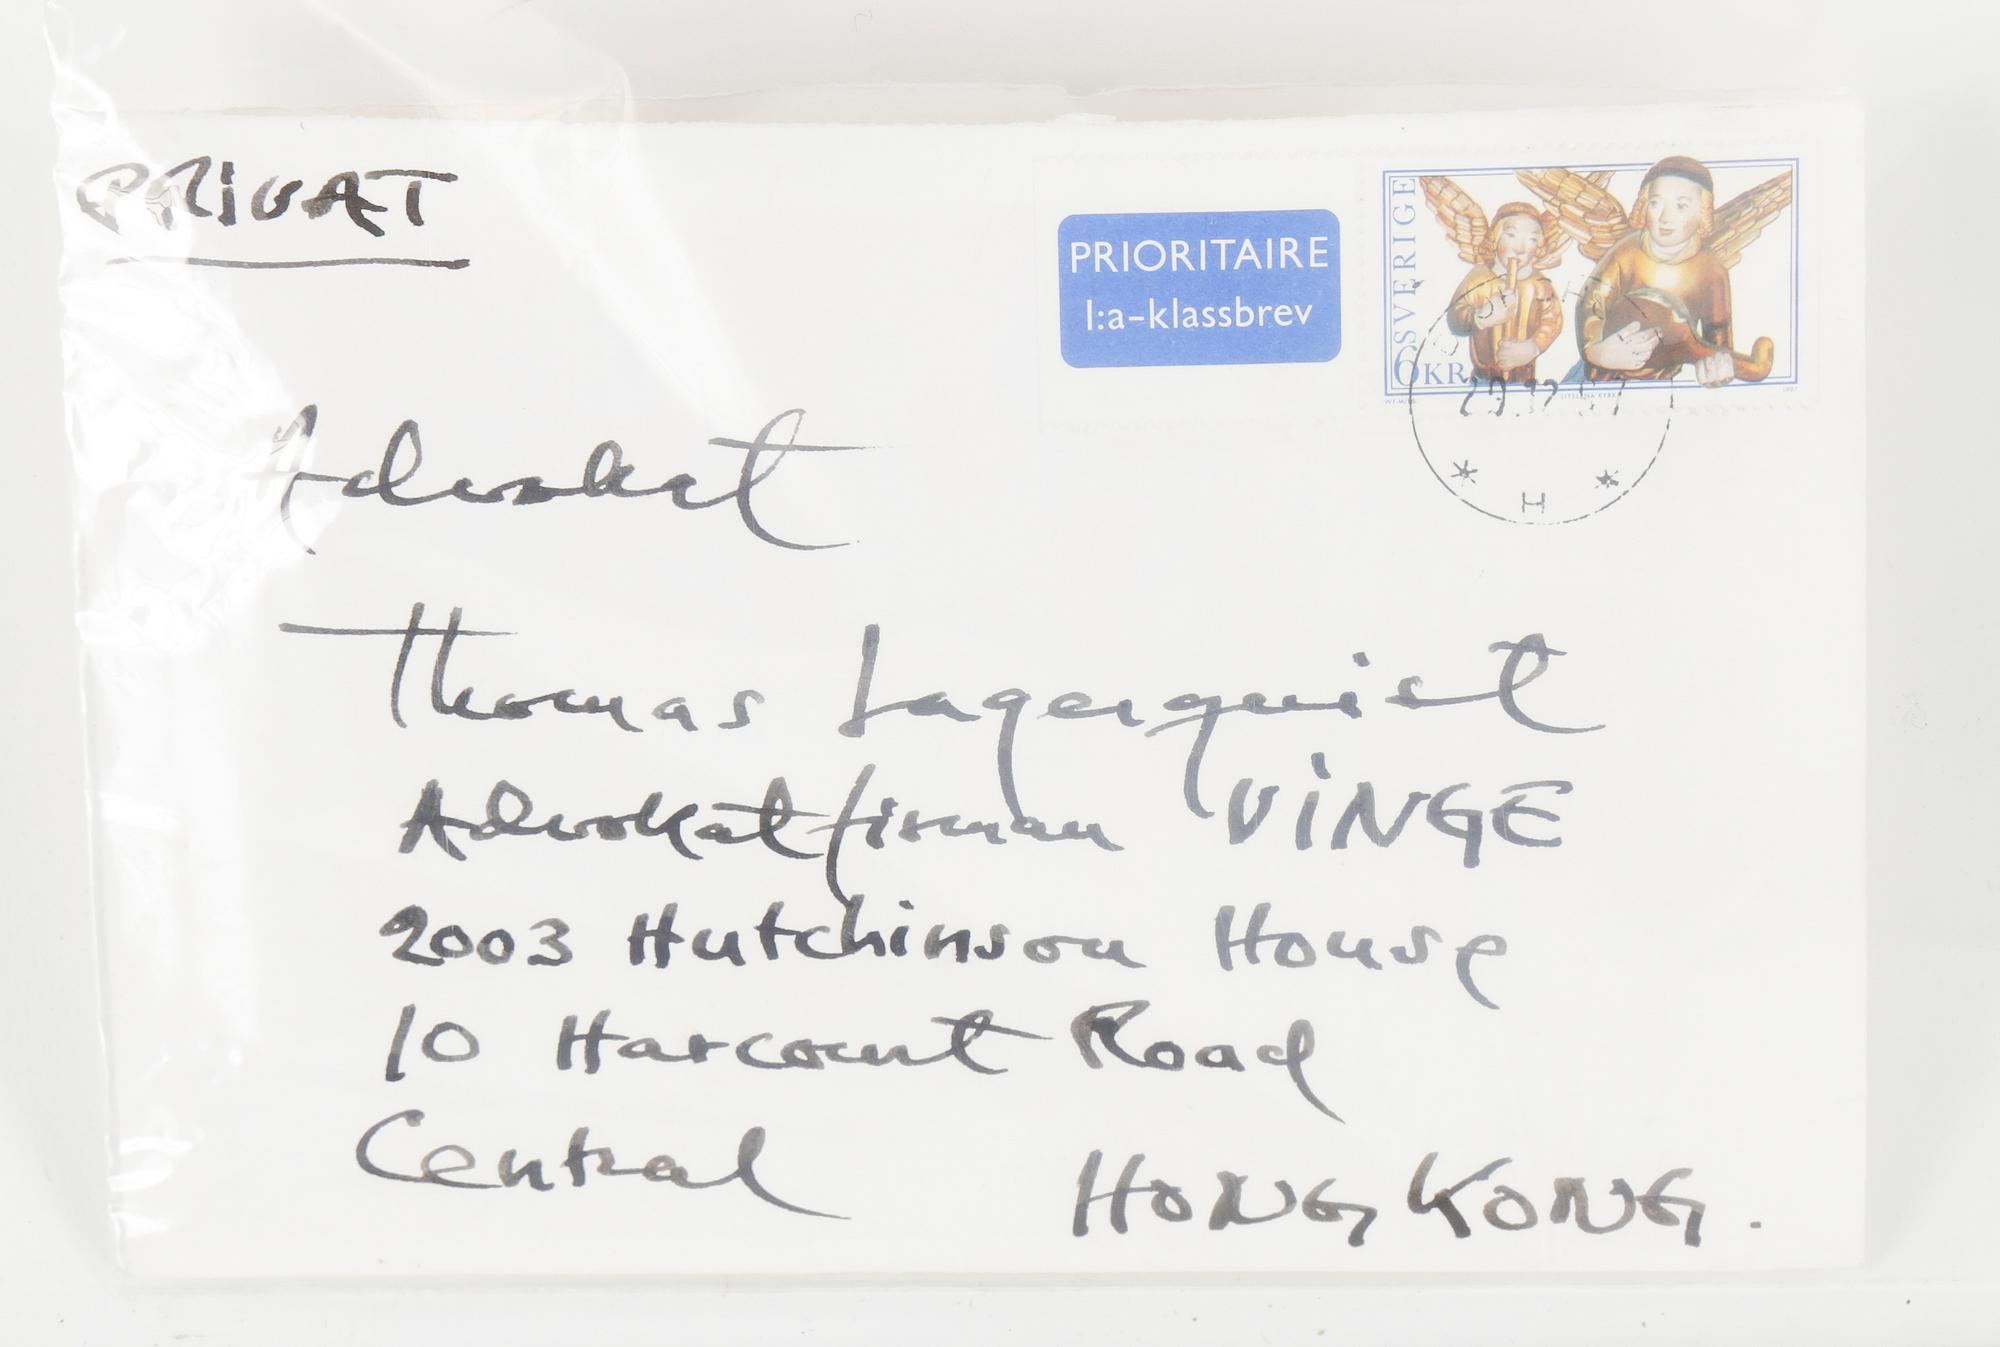 PRIVAT
PRIORITAIRE
1:a-klassbrev
SVERIGE
6 KR
H
Advokat
Thomas Lagerquist
Advokatfirman VINGE
2003 Hutchinson House
10 Harcourt Road
Central HONG KONG.